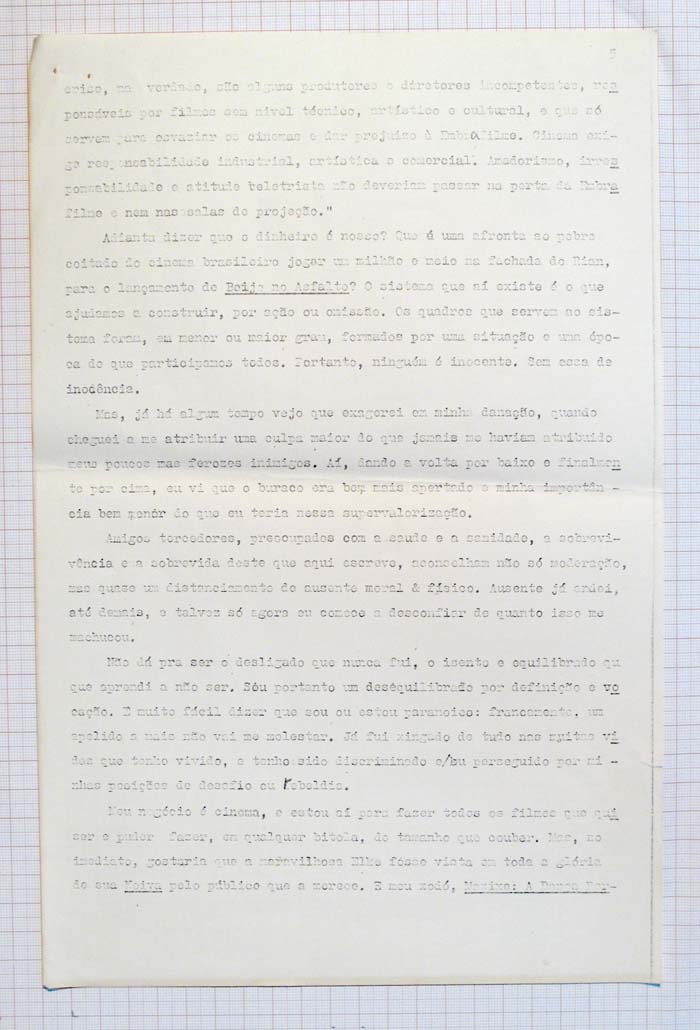 5
crise, na verdade, são alguns produtores e diretores incompetentes, res
ponsáveis por filmes sem nível técnico, artístico e cultural, e que só
servem para esvaziar os cinemas e dar prejuízo à Embrafilme. Cinema exi-
ge responsabilidade industrial, artística e comercial. Amadorismo, irres
ponsabilidade e atitude beletrista não deveriam passar na porta da Embra
filme e nem nas salas de projeção."
Adianta dizer que o dinheiro é nosso? Que é uma afronta ao pobre
coitado do cinema brasileiro jogar um milhão e meio na fachada do Rian,
para o lançamento de Beijo no Asfalto? O sistema que aí existe é o que
ajudamos a construir, por ação ou omissão. Os quadros que servem ao sis-
tema foram, em menor ou maior grau, formados por uma situação e uma épo-
ca de que participamos todos. Portanto, ninguém é inocente. Sem essa de
inocência.
Mas, já há algum tempo vejo que exagerei em minha danação, quando
cheguei a me atribuir uma culpa maior do que jamais me haviam atribuido
meus poucos mas ferozes inimigos. Aí, dando a volta por baixo e finalmen
te por cima, eu vi que o buraco era bem mais apertado e minha importân -
cia bem menór do que eu teria nessa supervalorização.
Amigos torcedores, preocupados com a saude e a sanidade, a sobrevi-
vência e a sobrevida deste que aqui escreve, aconselham não só moderação,
mas quase um distanciamento de ausente moral & físico. Ausente já andei,
até demais, e talvez só agora eu comece a desconfiar de quanto isso me
machucou.
Não dá pra ser o desligado que nunca fui, o isento e equilibrado qu
que aprendi a não ser. Sou portanto um desequilibrado por definição e vo
cação. E muito fácil dizer que sou ou estou paranoico: francamente, um
apelido a mais não vai me molestar. Já fui xingado de tudo nas muitas vi
das que tenho vivido, e tenho sido discriminado e/ou perseguido por mi -
nhas posições de desafio ou rebeldia.
Meu negócio é cinema, e estou aí para fazer todos os filmes que qui
ser e puder fazer, em qualquer bitola, do tamanho que couber. Mas, no
imediato, gostaria que a maravilhosa Elke fôsse vista em toda a glória
de sua Noiva pelo público que a merece. E meu xodó, Maxixe: A Dança Per-